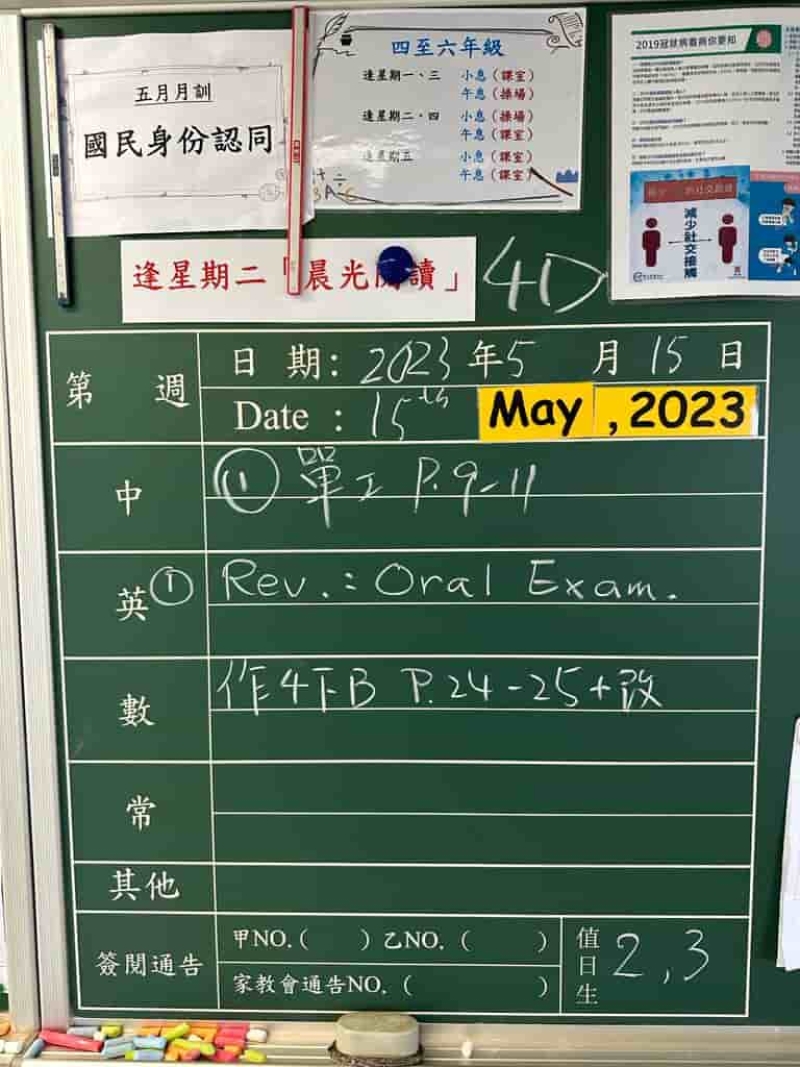 五月月訓
國民身份認同
四至六年級
逢星期一、三 小息（課室）
午息（操場）
逢星期二、四 小息（操場）
午息（課室）
逢星期五 小息（課室）
午息（課室）
2019冠狀病毒病你要知
減少社交接觸
逢星期二「晨光閱讀」
4D
第 週
日 期：2023年5月15日
Date : 15th May , 2023
中 ① 單工 P.9-11
英 ① Rev.: Oral Exam.
數 作4下B P.24-25+改
常
其他
簽閱通告
甲NO.( ) 乙NO. ( )
家教會通告NO. ( )
值日生 2,3